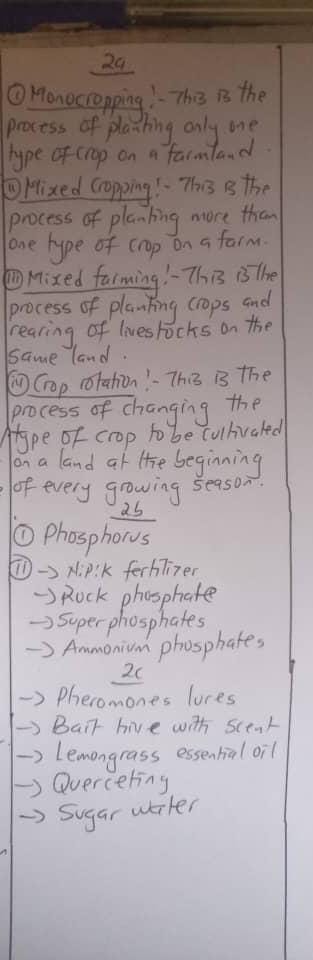 2a
(i) Monocropping!- This is the
process of planting only one
type of crop on a farmland.
(ii) Mixed Cropping!- This is the
process of planting more than
one type of crop on a farm.
(iii) Mixed farming!- This is the
process of planting crops and
rearing of livestocks on the
same land.
(iv) Crop rotation!- This is the
process of changing the
type of crop to be cultivated
on a land at the beginning
of every growing season.
2b
(i) Phosphorus
(ii) -> N:P:K fertilizer
-> Rock phosphate
-> Super phosphates
-> Ammonium phosphates
2c
-> Pheromones lures
-> Bait hive with scent
-> Lemongrass essential oil
-> Querceting
-> Sugar water